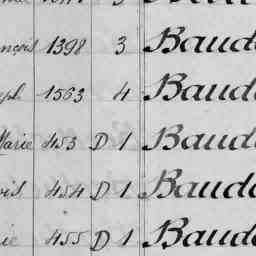 nçois 1398 3 Baud
eph 1563 4 Baud
Marie 453 D 1 Baud
ois 454 D 1 Baud
ie 455 D 1 Baud